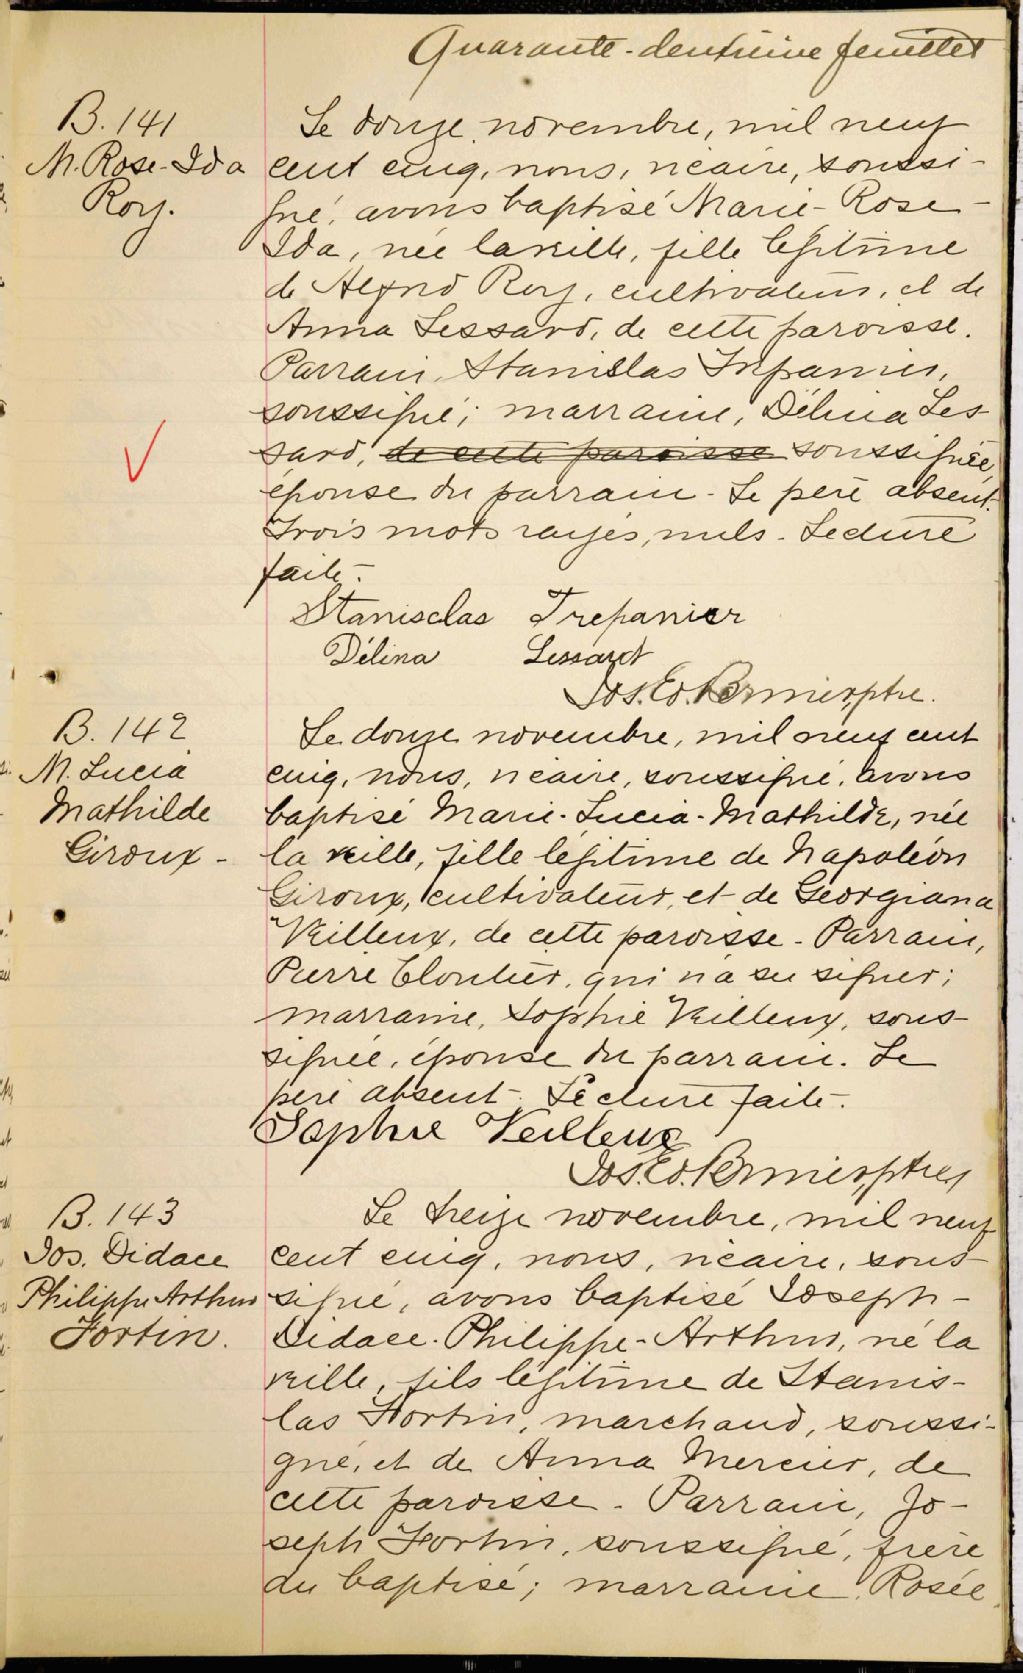 Quarante-deuxième feuillet
B. 141
M. Rose-Ida
Roy.
Le douze novembre, mil neuf
cent cinq, nous, vicaire, soussi-
gné, avons baptisé Marie-Rose-
Ida, née la veille, fille légitime
de Alfred Roy, cultivateur, et de
Anna Lessard, de cette paroisse.
Parrain, Stanislas Trépanier,
soussigné; marraine, Délina Les-
sard, de cette paroisse soussignée,
épouse du parrain - Le père absent.
Trois mots rayés, nuls - Lecture
faite -
Stanisclas Trepanier
Délina Lessard
Jos. Ed. Bernier, ptre.
B. 142
M. Lucia
Mathilde
Giroux -
Le douze novembre, mil neuf cent
cinq, nous, vicaire, soussigné, avons
baptisé Marie-Lucia-Mathilde, née
la veille, fille légitime de Napoléon
Giroux, cultivateur, et de Georgiana
Veilleux, de cette paroisse - Parrain,
Pierre Cloutier, qui n'a su signer;
marraine, Sophie Veilleux, sous-
signée, épouse du parrain. Le
père absent - Lecture faite -
Sophie Veilleux
Jos. Ed. Bernier, ptre
B. 143
Jos. Didace
Philippe Arthur
Fortin.
Le treize novembre, mil neuf
cent cinq, nous, vicaire, sous-
signé, avons baptisé Joseph-
Didace-Philippe-Arthur, né la
veille, fils légitime de Stanis-
las Fortin, marchand, soussi-
gné, et de Anna Mercier, de
cette paroisse - Parrain, Jo-
seph Fortin, soussigné, frère
du baptisé; marraine, Rosée